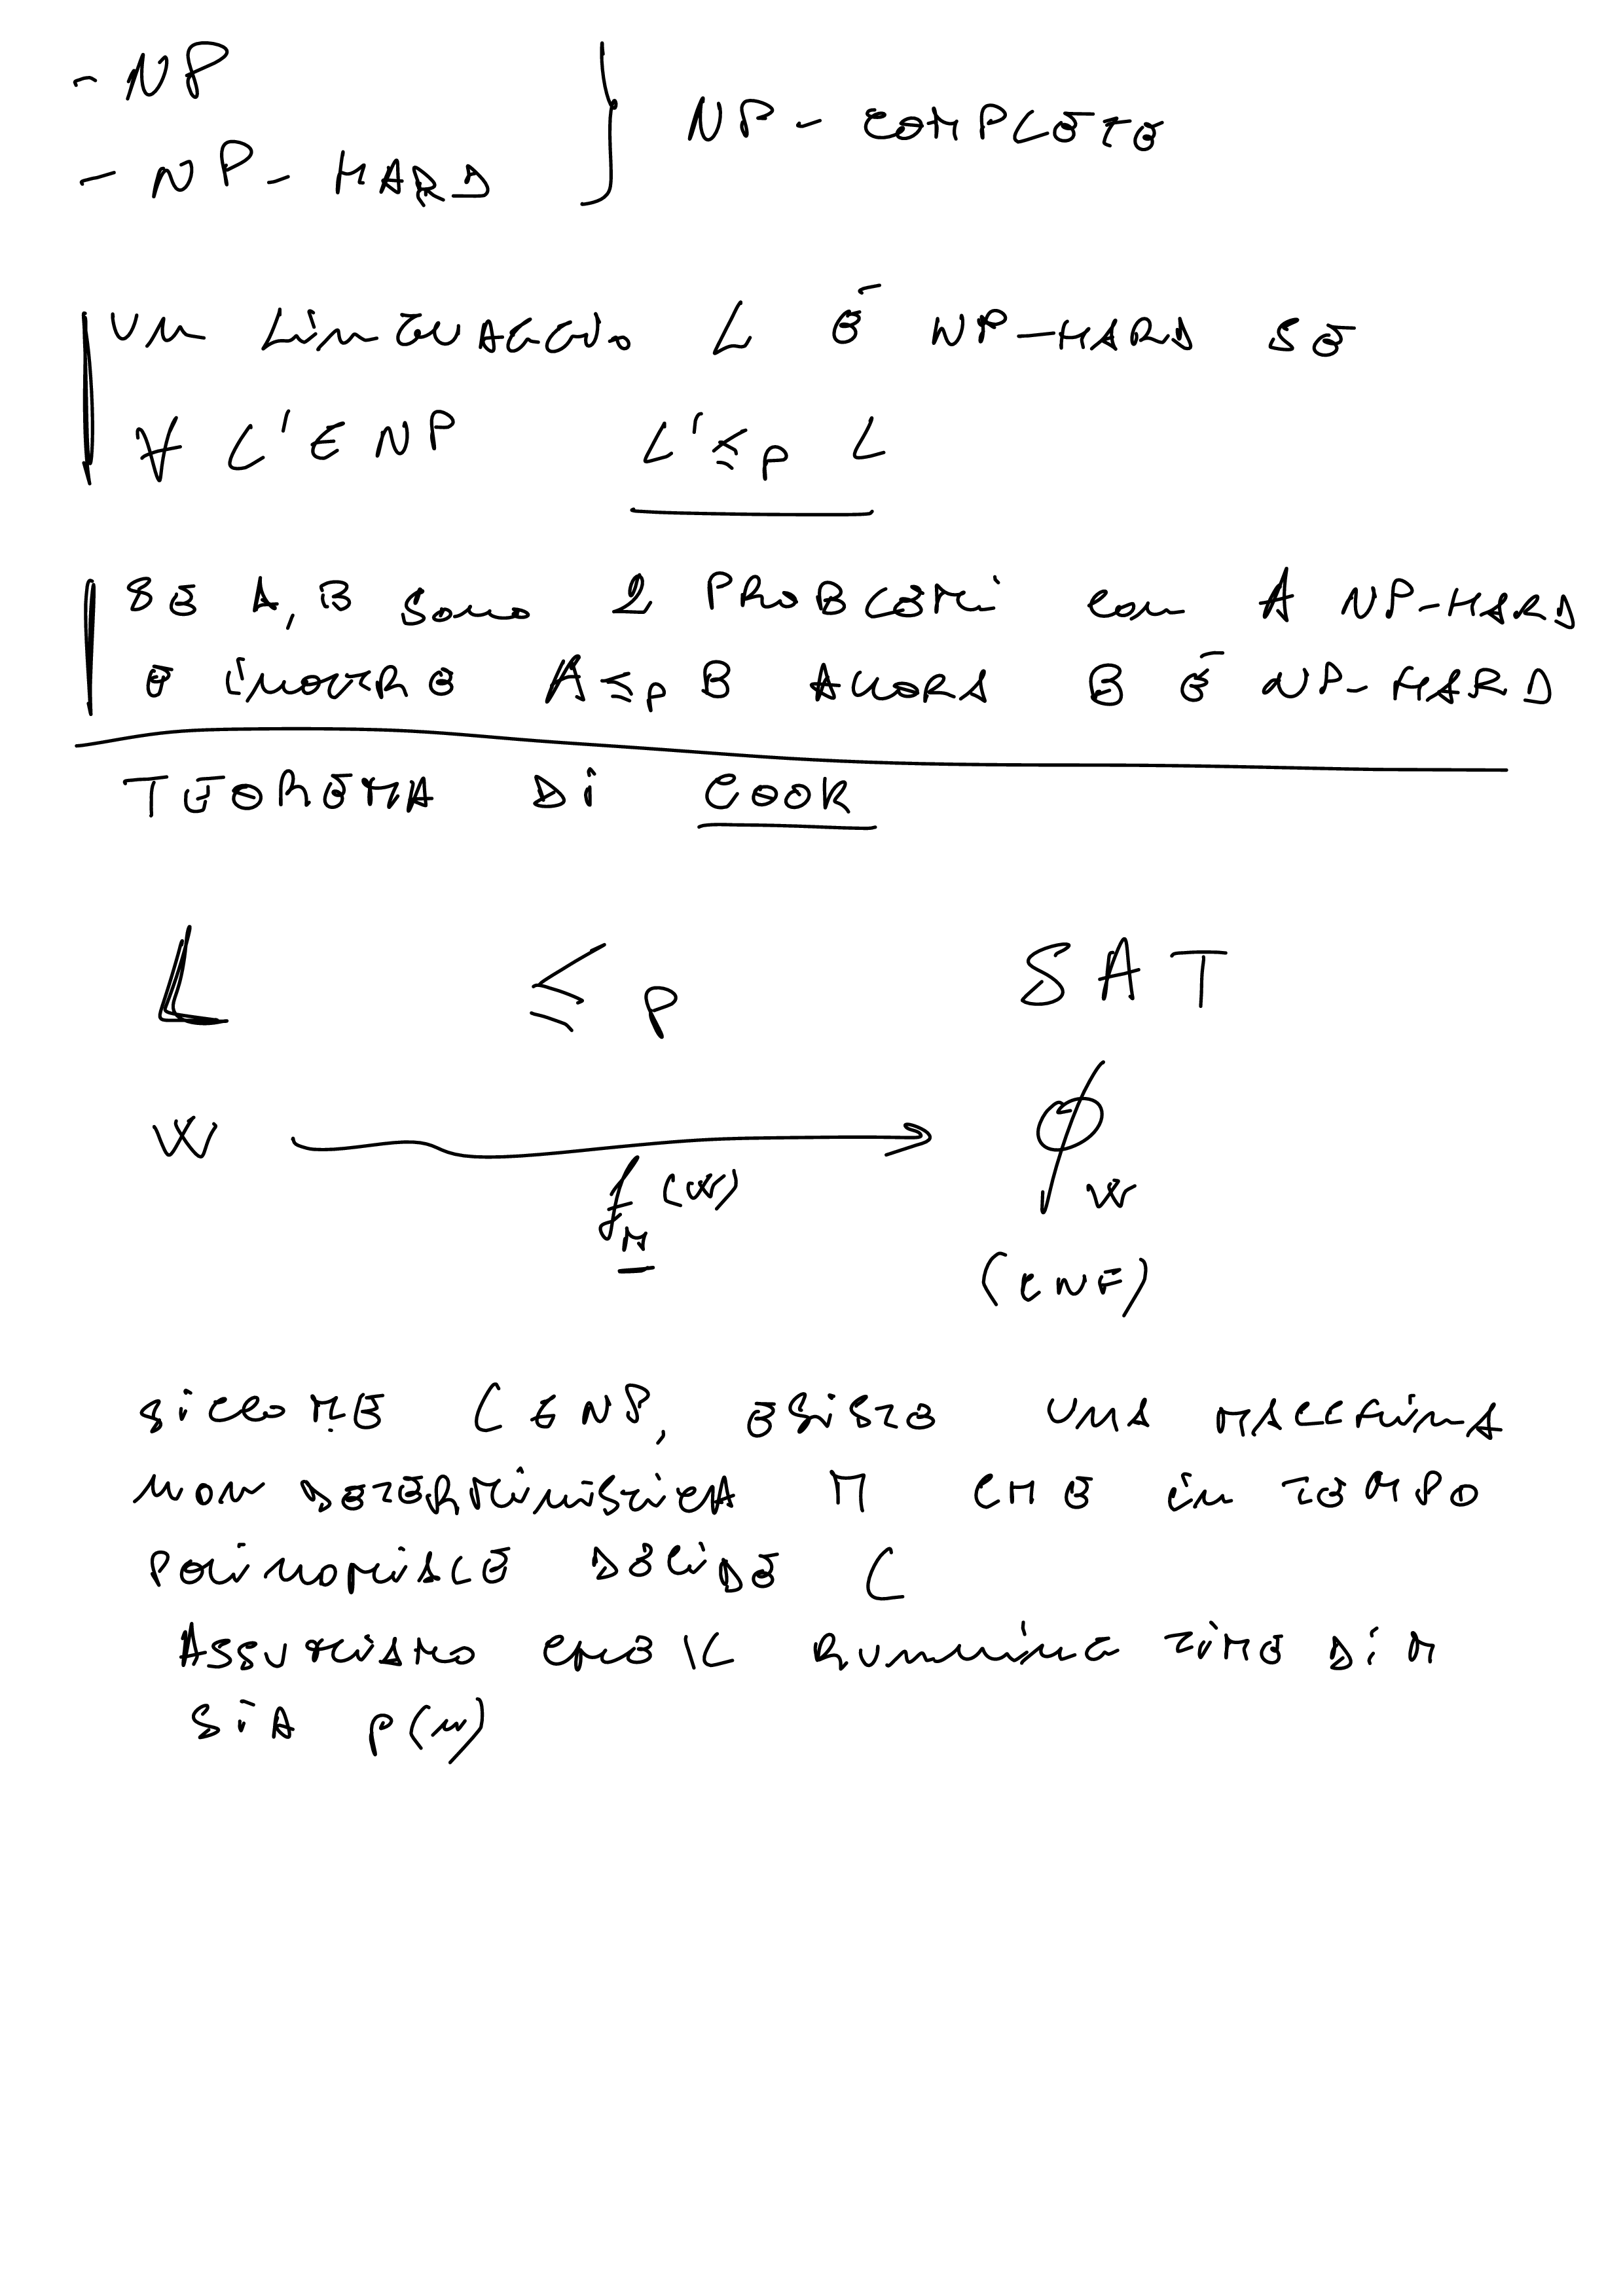 - NP
- NP - HARD } NP - COMPLETE
UN LINGUAGGIO L È NP-HARD SE
∀ L' ∈ NP L' ≤p L
SE A, B SONO 2 PROBLEMI CON A NP-HARD
E INOLTRE A ≤p B ALLORA B È NP-HARD
TEOREMA DI COOK
L ≤p SAT
W → ϕW
fM(W)
(CNF)
SICCOME L ∈ NP, ESISTE UNA MACCHINA
NON DETERMINISTICA M CHE IN TEMPO
POLINOMIALE DECIDE L
ASSUMIAMO CHE IL RUNNING TIME DI M
SIA P(n)